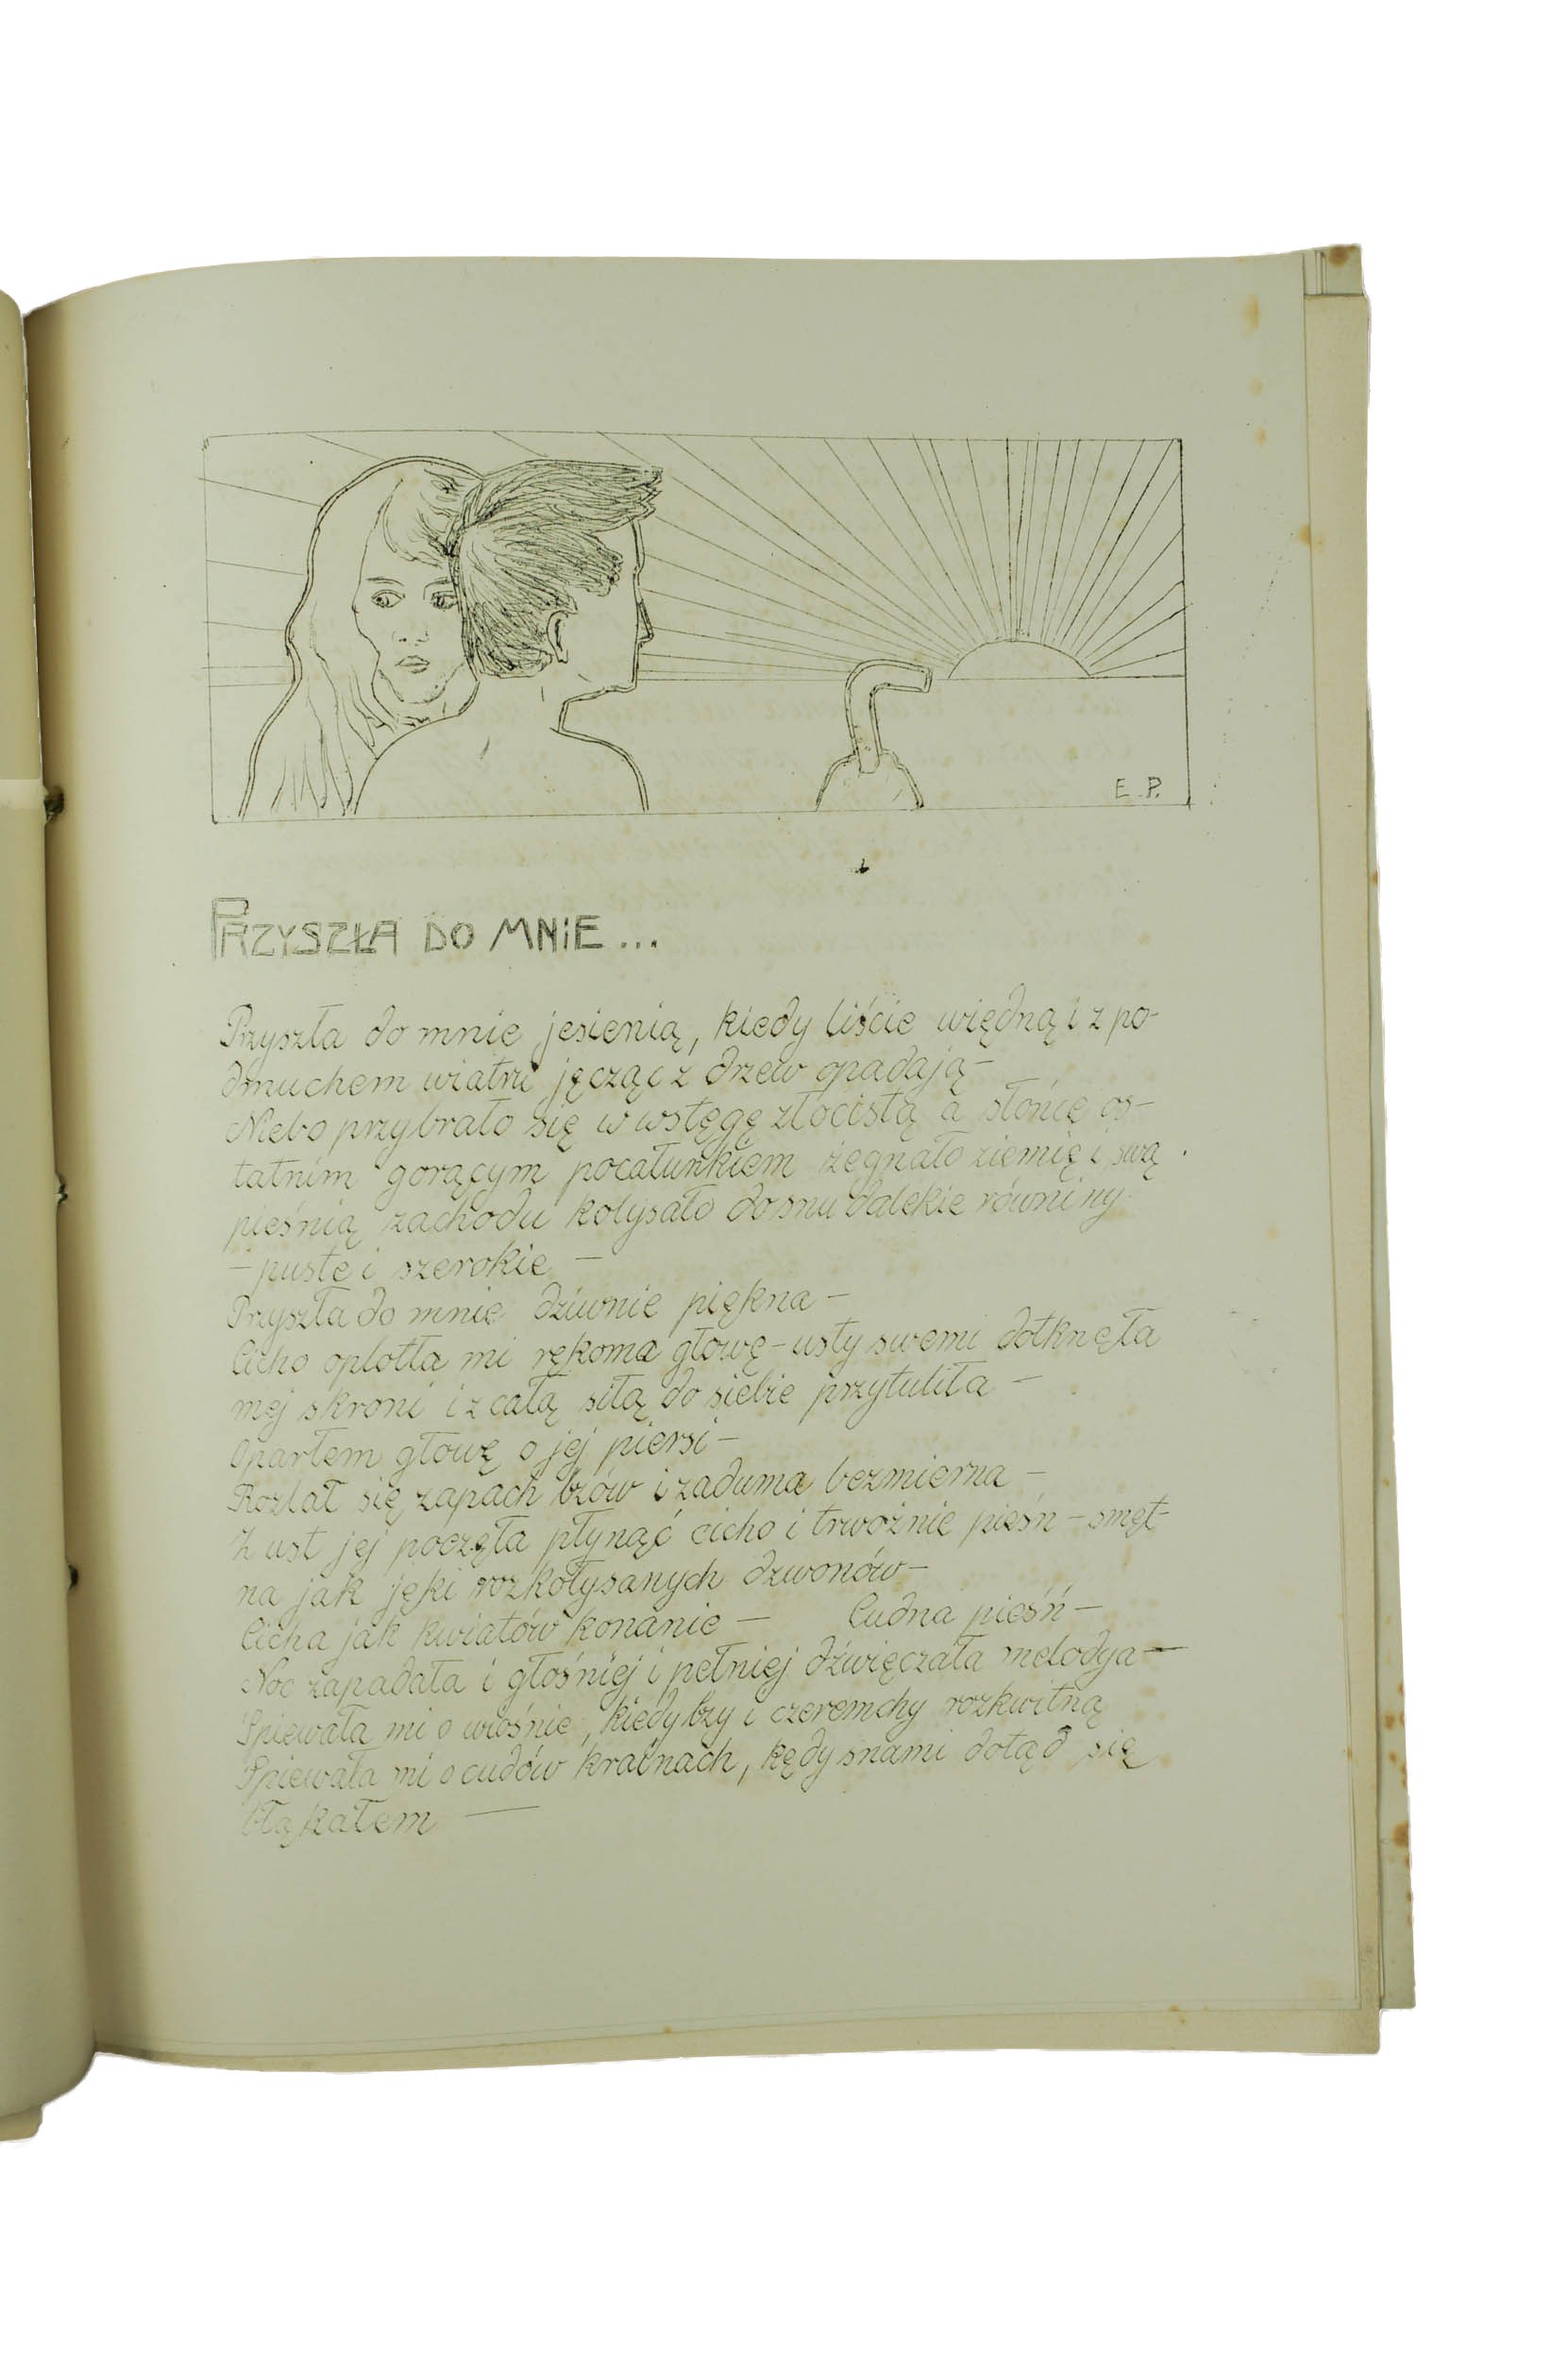 E. P.
PRZYSZŁA DO MNiE...
Przyszła do mnie jesienią, kiedy liście więdną i z po-
dmuchem wiatru jęcząc z drzew opadają -
Niebo przybrało się w wstęgę złocistą a słońce os-
tatnim gorącym pocałunkiem żegnało ziemię i swą
pieśnią zachodu kołysało do snu dalekie równiny
- puste i szerokie -
Przyszła do mnie dziwnie piękna -
Cicho oplotła mi rękoma głowę - usty swemi dotknęła
mej skroni i z całą siłą do siebie przytuliła -
Oparłem głowę o jej piersi -
Rozlał się zapach bzów i zaduma bezmierna -
Z ust jej poczęła płynąć cicho i trwożnie pieśń - smęt-
na jak jęki rozkołysanych dzwonów -
Cicha jak kwiatów konanie - Cudna pieśń -
Noc zapadała i głośniej i pełniej dźwięczała melodya -
Śpiewała mi o wiośnie, kiedy bzy i czeremchy rozkwitną
Śpiewała mi o cudów krainach, kędy snami dotąd się
błąkałem -